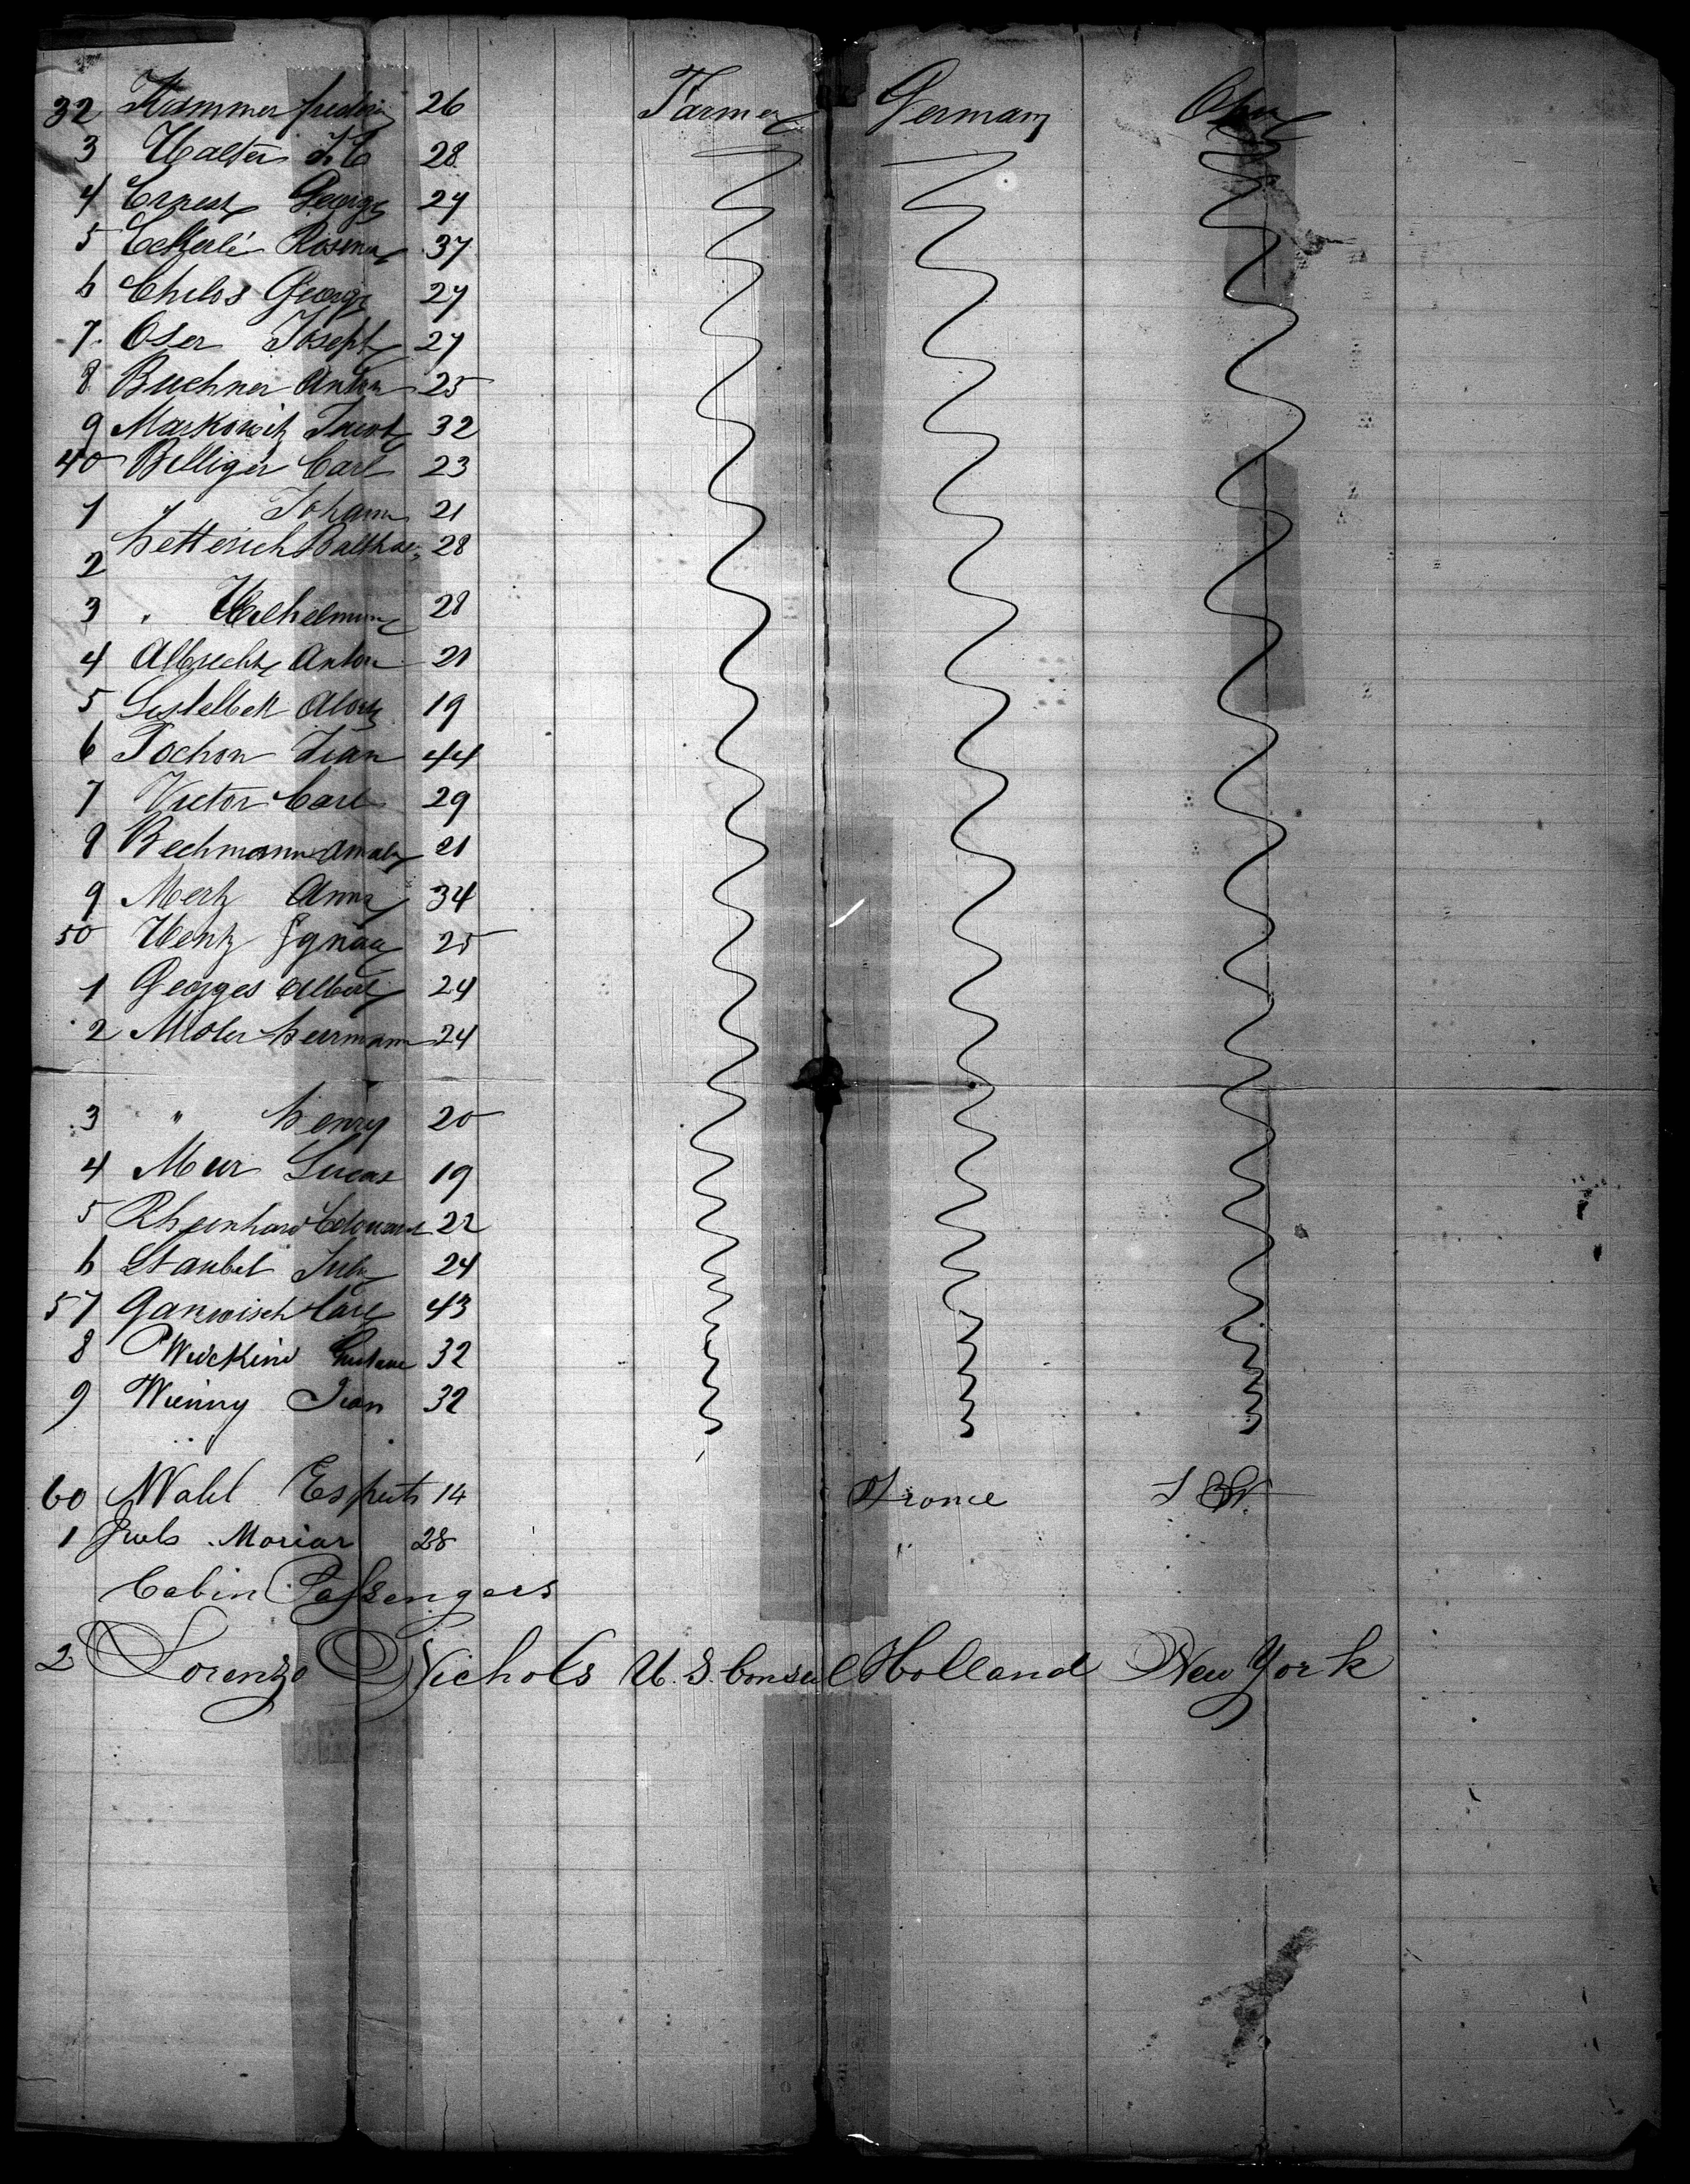 32 Kammer frederic 26 Farmer Germany Ohio
3 Walter 28
4 Ernest George 27
5 Eckerle Rosina 37
6 Chilos George 27
7 Oser Joseph 27
8 Buchner Anton 25
9 Markowitz Jacob 32
40 Billiger Carl 23
1 " Johann 21
2 hetterich Balthas 28
3 " Wilhelmine 28
4 Albrecht Anton 21
5 19
6 Pochon Jean 44
7 Victor Carl 29
8 Bechmann Amaly 21
9 Mertz Anna 34
50 Wentz Ignaz 25
1 Georges Albert 24
2 Moler herrmann 24
3 " henry 20
4 Meir Lucas 19
5 Rheinhard Edouard 22
6 Staubel July 24
57 Garwisch Carl 43
8 Wickind Gustave 32
9 Wienny Jean 32
60 Wahl 14 France
1 Juls Moriar 28 "
Cabin Passengers
2 Lorenzo Nichols U. S. Consul Holland New York